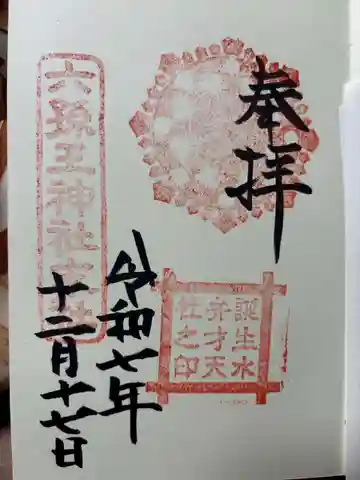 奉拝
誕生水
弁才天
社之印
令和七年
十二月十七日
六孫王神社